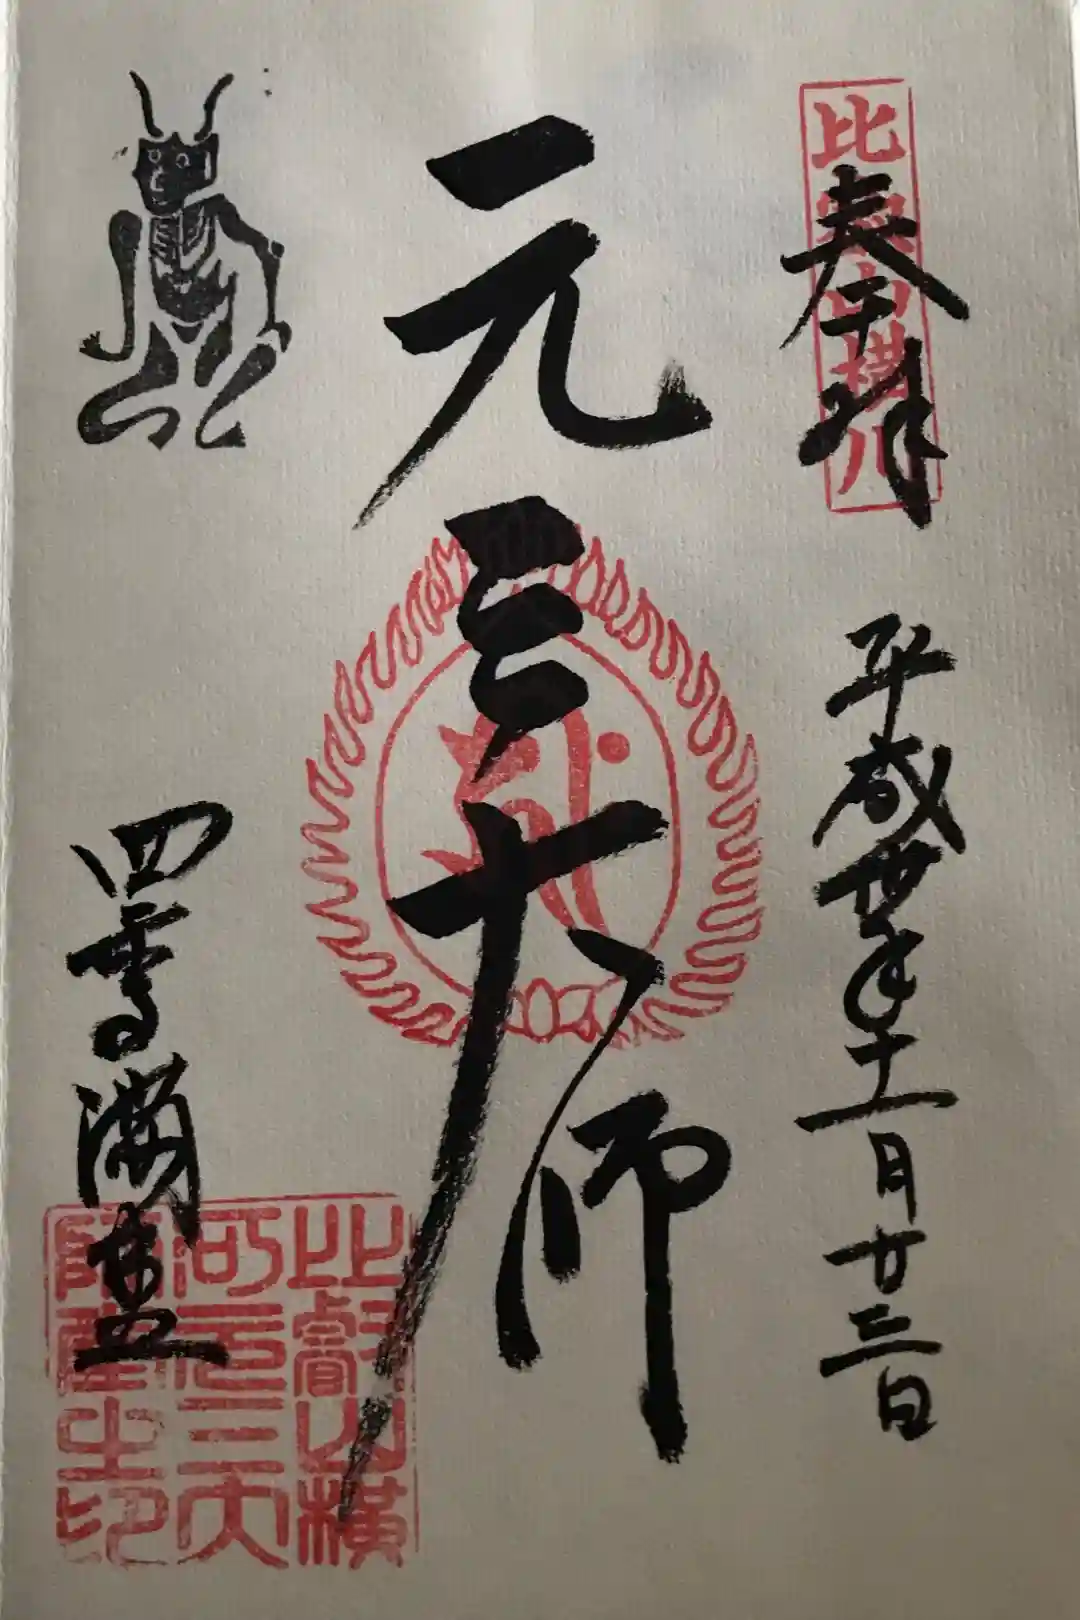 比叡山横川
奉拝
平成丗年十一月廿三日
元三大師
四季講堂
比叡山横
河元三大
師堂之印